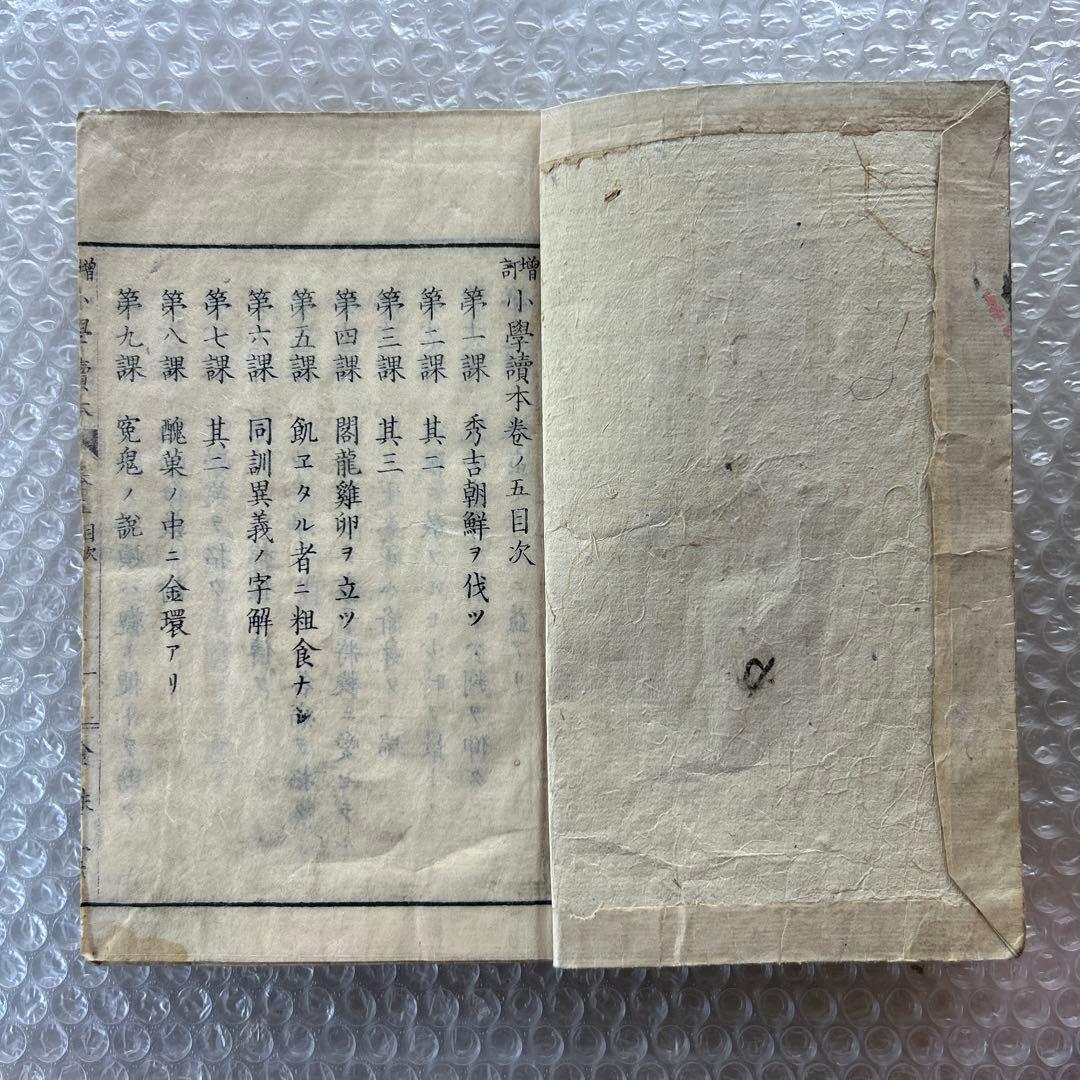 増訂小學讀本卷ノ五目次
第一課 秀吉朝鮮ヲ伐ツ
第二課 其二
第三課 其三
第四課 閣龍雞卵ヲ立ツ
第五課 飢ヱタル者ニ粗食ナシ
第六課 同訓異義ノ字解
第七課 其二
第八課 醜菓ノ中ニ金環アリ
第九課 冤鬼ノ說
目次